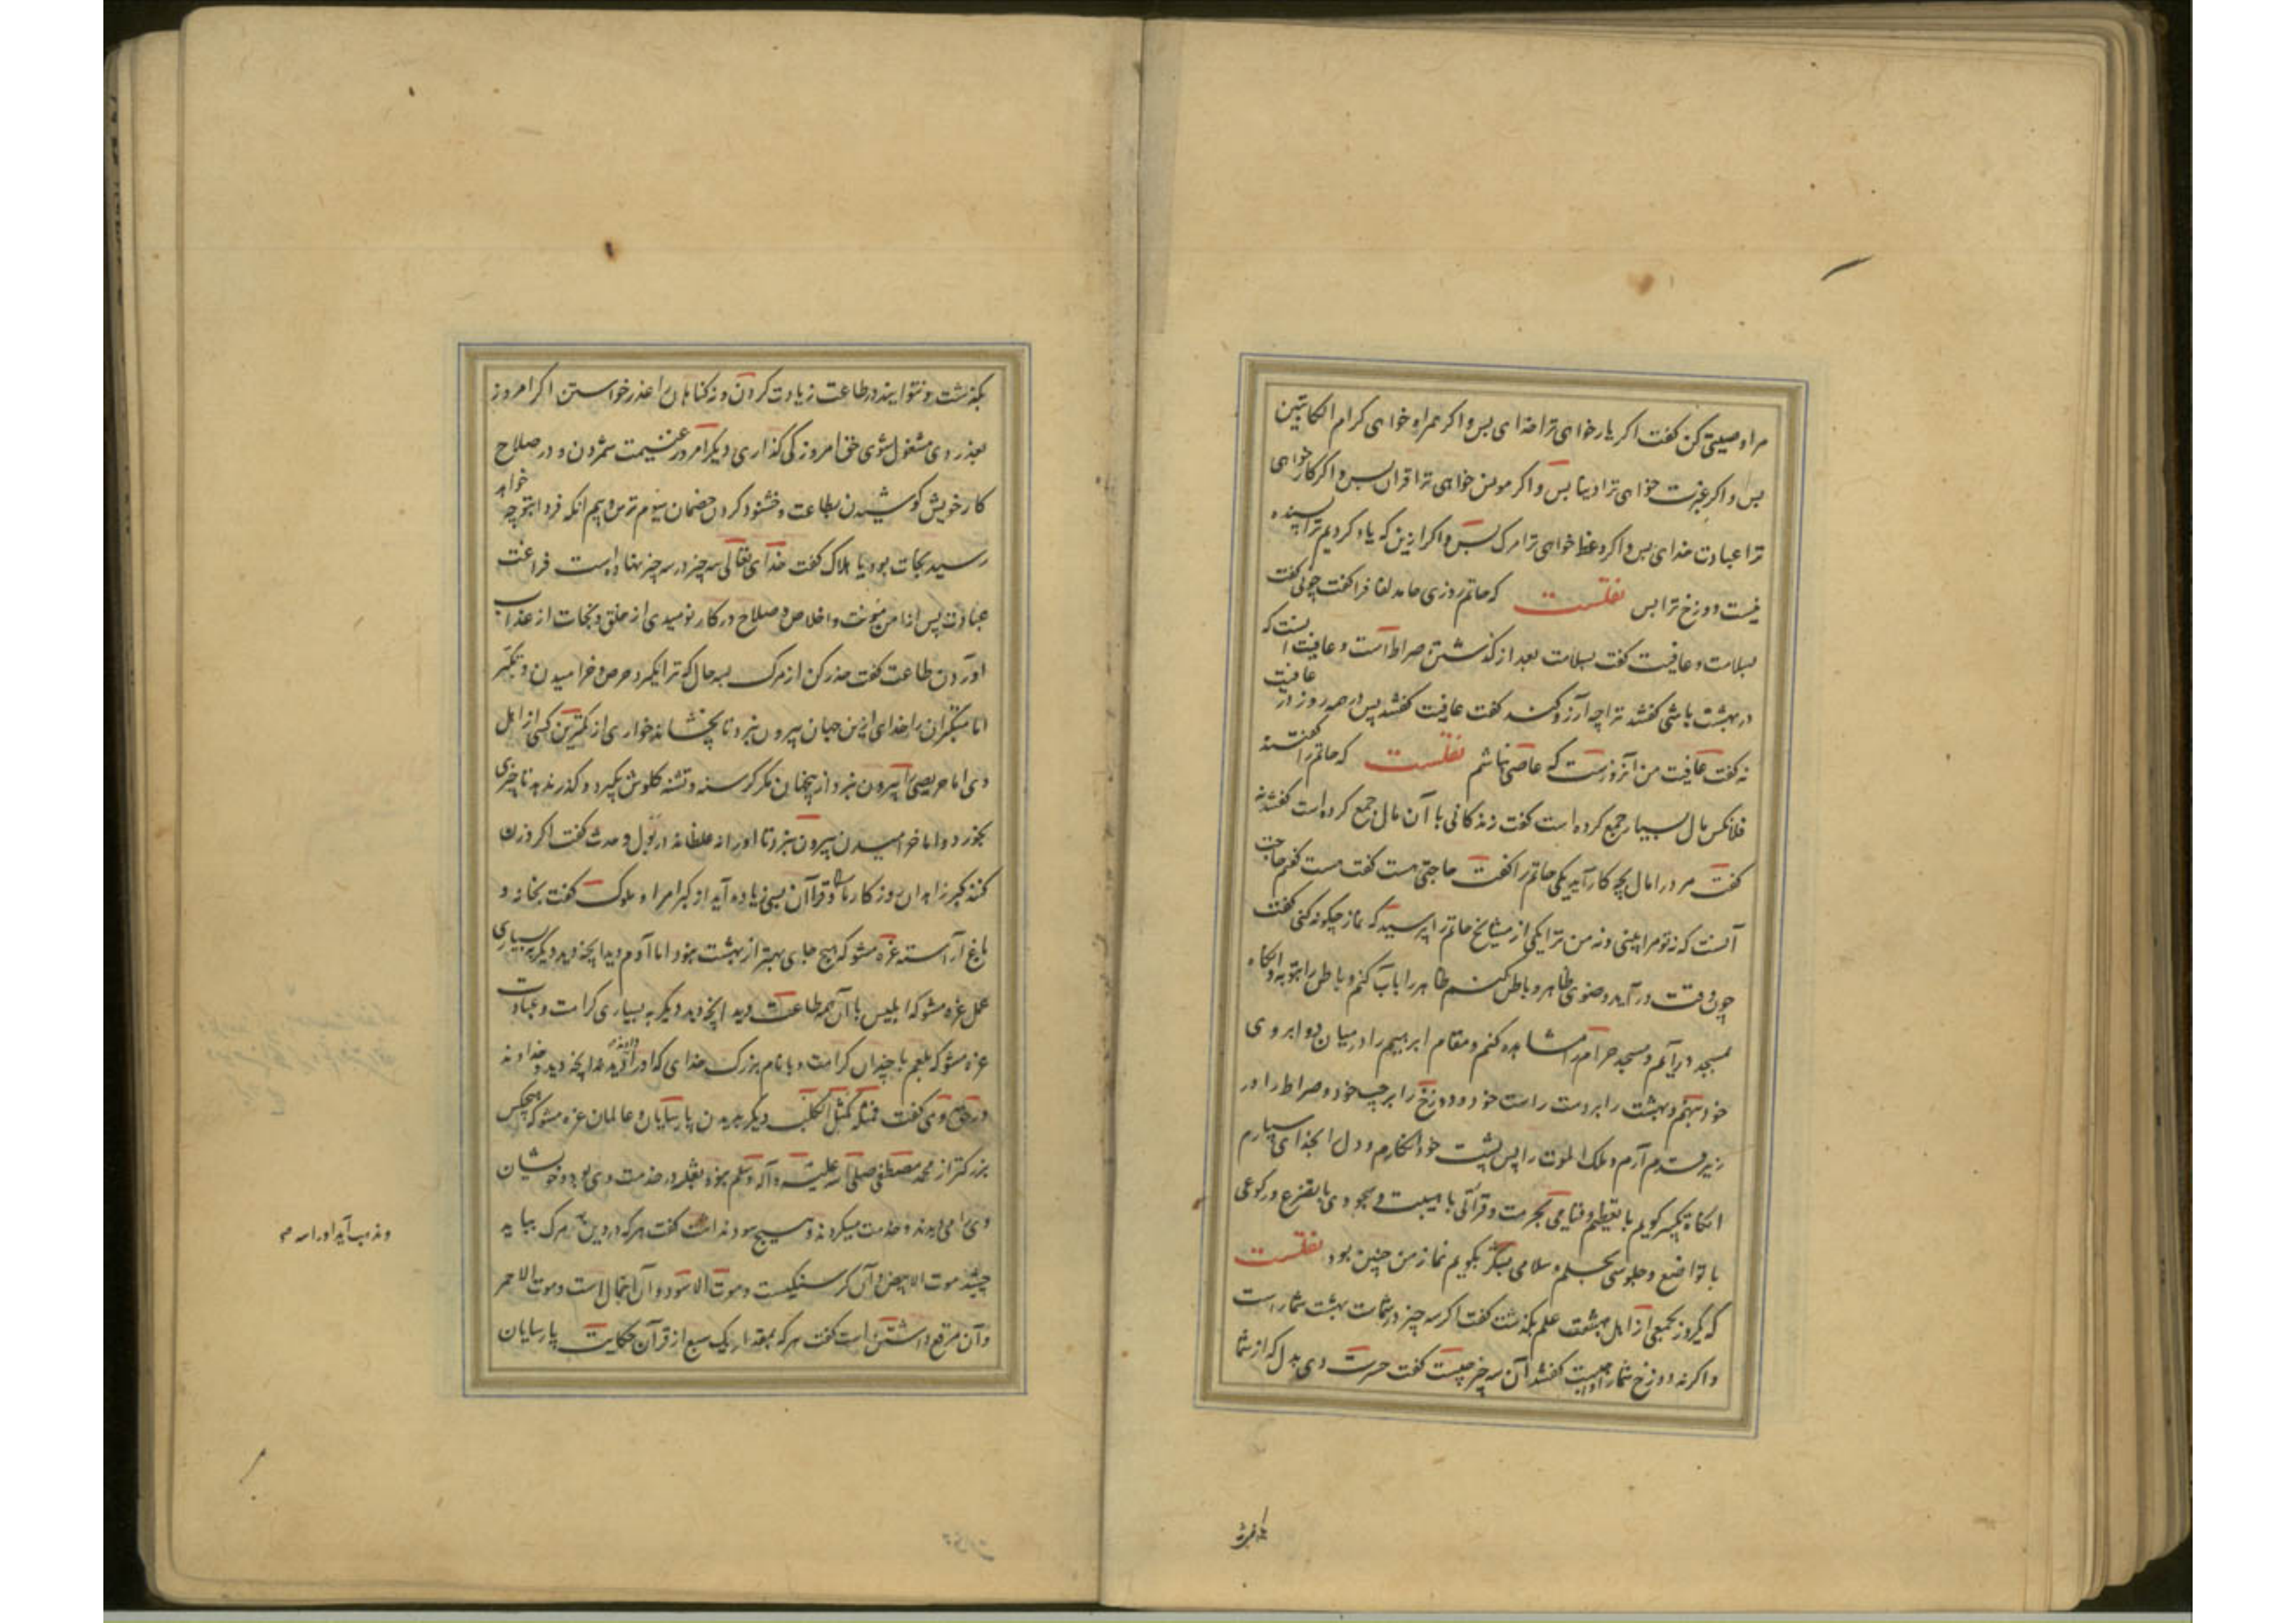 مرا وصیتی کن گفت اگر یار خواهی ترا خدای بس و اگر همراه خواهی کرام الکاتبین
بس و اگر عبرت خواهی ترا دنیا بس و اگر مونس خواهی ترا قران بس و اگر کار خواهی
ترا عبادت خدای بس و اگر وعظ خواهی ترا مرک بس و اگر ازین که یاد کردیم ترا پسنده
نیست دوزخ ترا بس نقلست که حاتم روزی حامد لفاف را گفت چونی گفت
بسلامت و عافیت گفت بسلامت بعد از گذشتن صراط است و عافیت آنست که
در بهشت باشی گفتند ترا چه آرزو کند گفت عافیت گفتند پس در همه روز در عافیت
نه گفت عافیت من آنروزست که عاصی نباشم نقلست که حاتم را گفتند
فلانکس مال بسیار جمع کرده است گفت زندکانی با آن مال جمع کرده است گفتند نه
گفت مرده را مال بچه کار آید یکی حاتم را گفت حاجتی هست گفت هست گفتم حاجت
آنست که نه تو مرا بینی و نه من ترا یکی از مشایخ حاتم را پرسید که نماز چکونه کنی گفت
چون وقت در آید وضوی ظاهر و باطن کنم ظاهر را باب کنم و باطن را بتوبه و انکاه
بمسجد درآیم و مسجد حرام را مشاهده کنم و مقام ابرهیم را در میان دو ابروی
خود بنهم و بهشت را بر دست راست خود و دوزخ را بر چپ خود و صراط را در
زیر قدم آرم و ملک الموت را پس پشت خود انکارم و دل را بخدای سپارم
انکاه تکبیر کویم با تعظیم و قیامی بحرمت و قرآتی با هیبت و سجودی با تضرع و رکوعی
با تواضع و جلوسی بحلم و سلامی بشکر بکویم نماز من چنین بود نقلست
که یکروز بجمعی از اهل علم بکذشت گفت اگر سه چیز در شماست بهشت شماراست
و اگر نه دوزخ شمارا واجبست گفتند آن سه چیز چیست گفت حسرت دی بدل که از شما
بکذشت و نتوانید در طاعت زیادت کردن و نه کناهان را عذر خواستن اگر امروز
بعذر دی مشغول شوی حق امروز کی کذاری دیکر امروز غنیمت شمردن و در صلاح
کار خویش کوشیدن بطاعت و خشنود کردن خصمان سیوم ترس و بیم انکه فردا بتو چه خواهد
رسید نجات بود یا هلاک گفت خدای تعالی سه چیز در سه چیز نهاده است فراغت
عبادت پس از امن مونت و اخلاص و صلاح در کار نومیدی از خلق و نجات از عذاب
آوردن طاعت گفت حذر کن از مرک بسه حال که ترا بگیرد حرص و خرامیدن و تکبر
اما متکبران را خدای ازین جهان بیرون نبرد تا بچشاند خواری از کمترین کسی از اهل
وی اما حریصی را بیرون نبرد از ینجهان مکر کرسنه و تشنه کلوش بگیرد و کذر ندهد تا چیزی
بخورد و اما خرامیدن بیرون نبرد تا او را نه غلطاند در بول و حدث گفت اگر وزن
کنند کبر زاهدان روزکار ما و قرآان بسی زیاده آید از کبر امرا و ملوک گفت بخانه و
باغ آراسته غره مشو که هیچ جای بهتر از بهشت نبود اما آدم دید انچه دید دیکر به بسیاری
عمل غره مشو که ابلیس با آن همه طاعت دید انچه دید دیکر به بسیاری کرامت و عبادت
غره مشو که بلعم با چندان کرامت و با نام بزرک خدای که او را داده بودند دید انچه دید و خداوند
در حق وی گفت فمثله کمثل الکلب دیکر بدیدن پارسایان و عالمان غره مشو که هیچکس
بزرکتر از محمد مصطفی صلی الله علیه و آله و سلم نبود ثعلبه در خدمت وی بود و خویشان
وی را می دیدند و خدمت میکردند و هیچ سود نداشت گفت هر که در دین مرک بباید
چشید موت الابیض و آن کرسنکیست و موت الاسود و آن احتمال است و موت الاحمر
و آن مرقع داشتن است گفت هر که بمقدار یک سبع از قرآن حکایت پارسایان